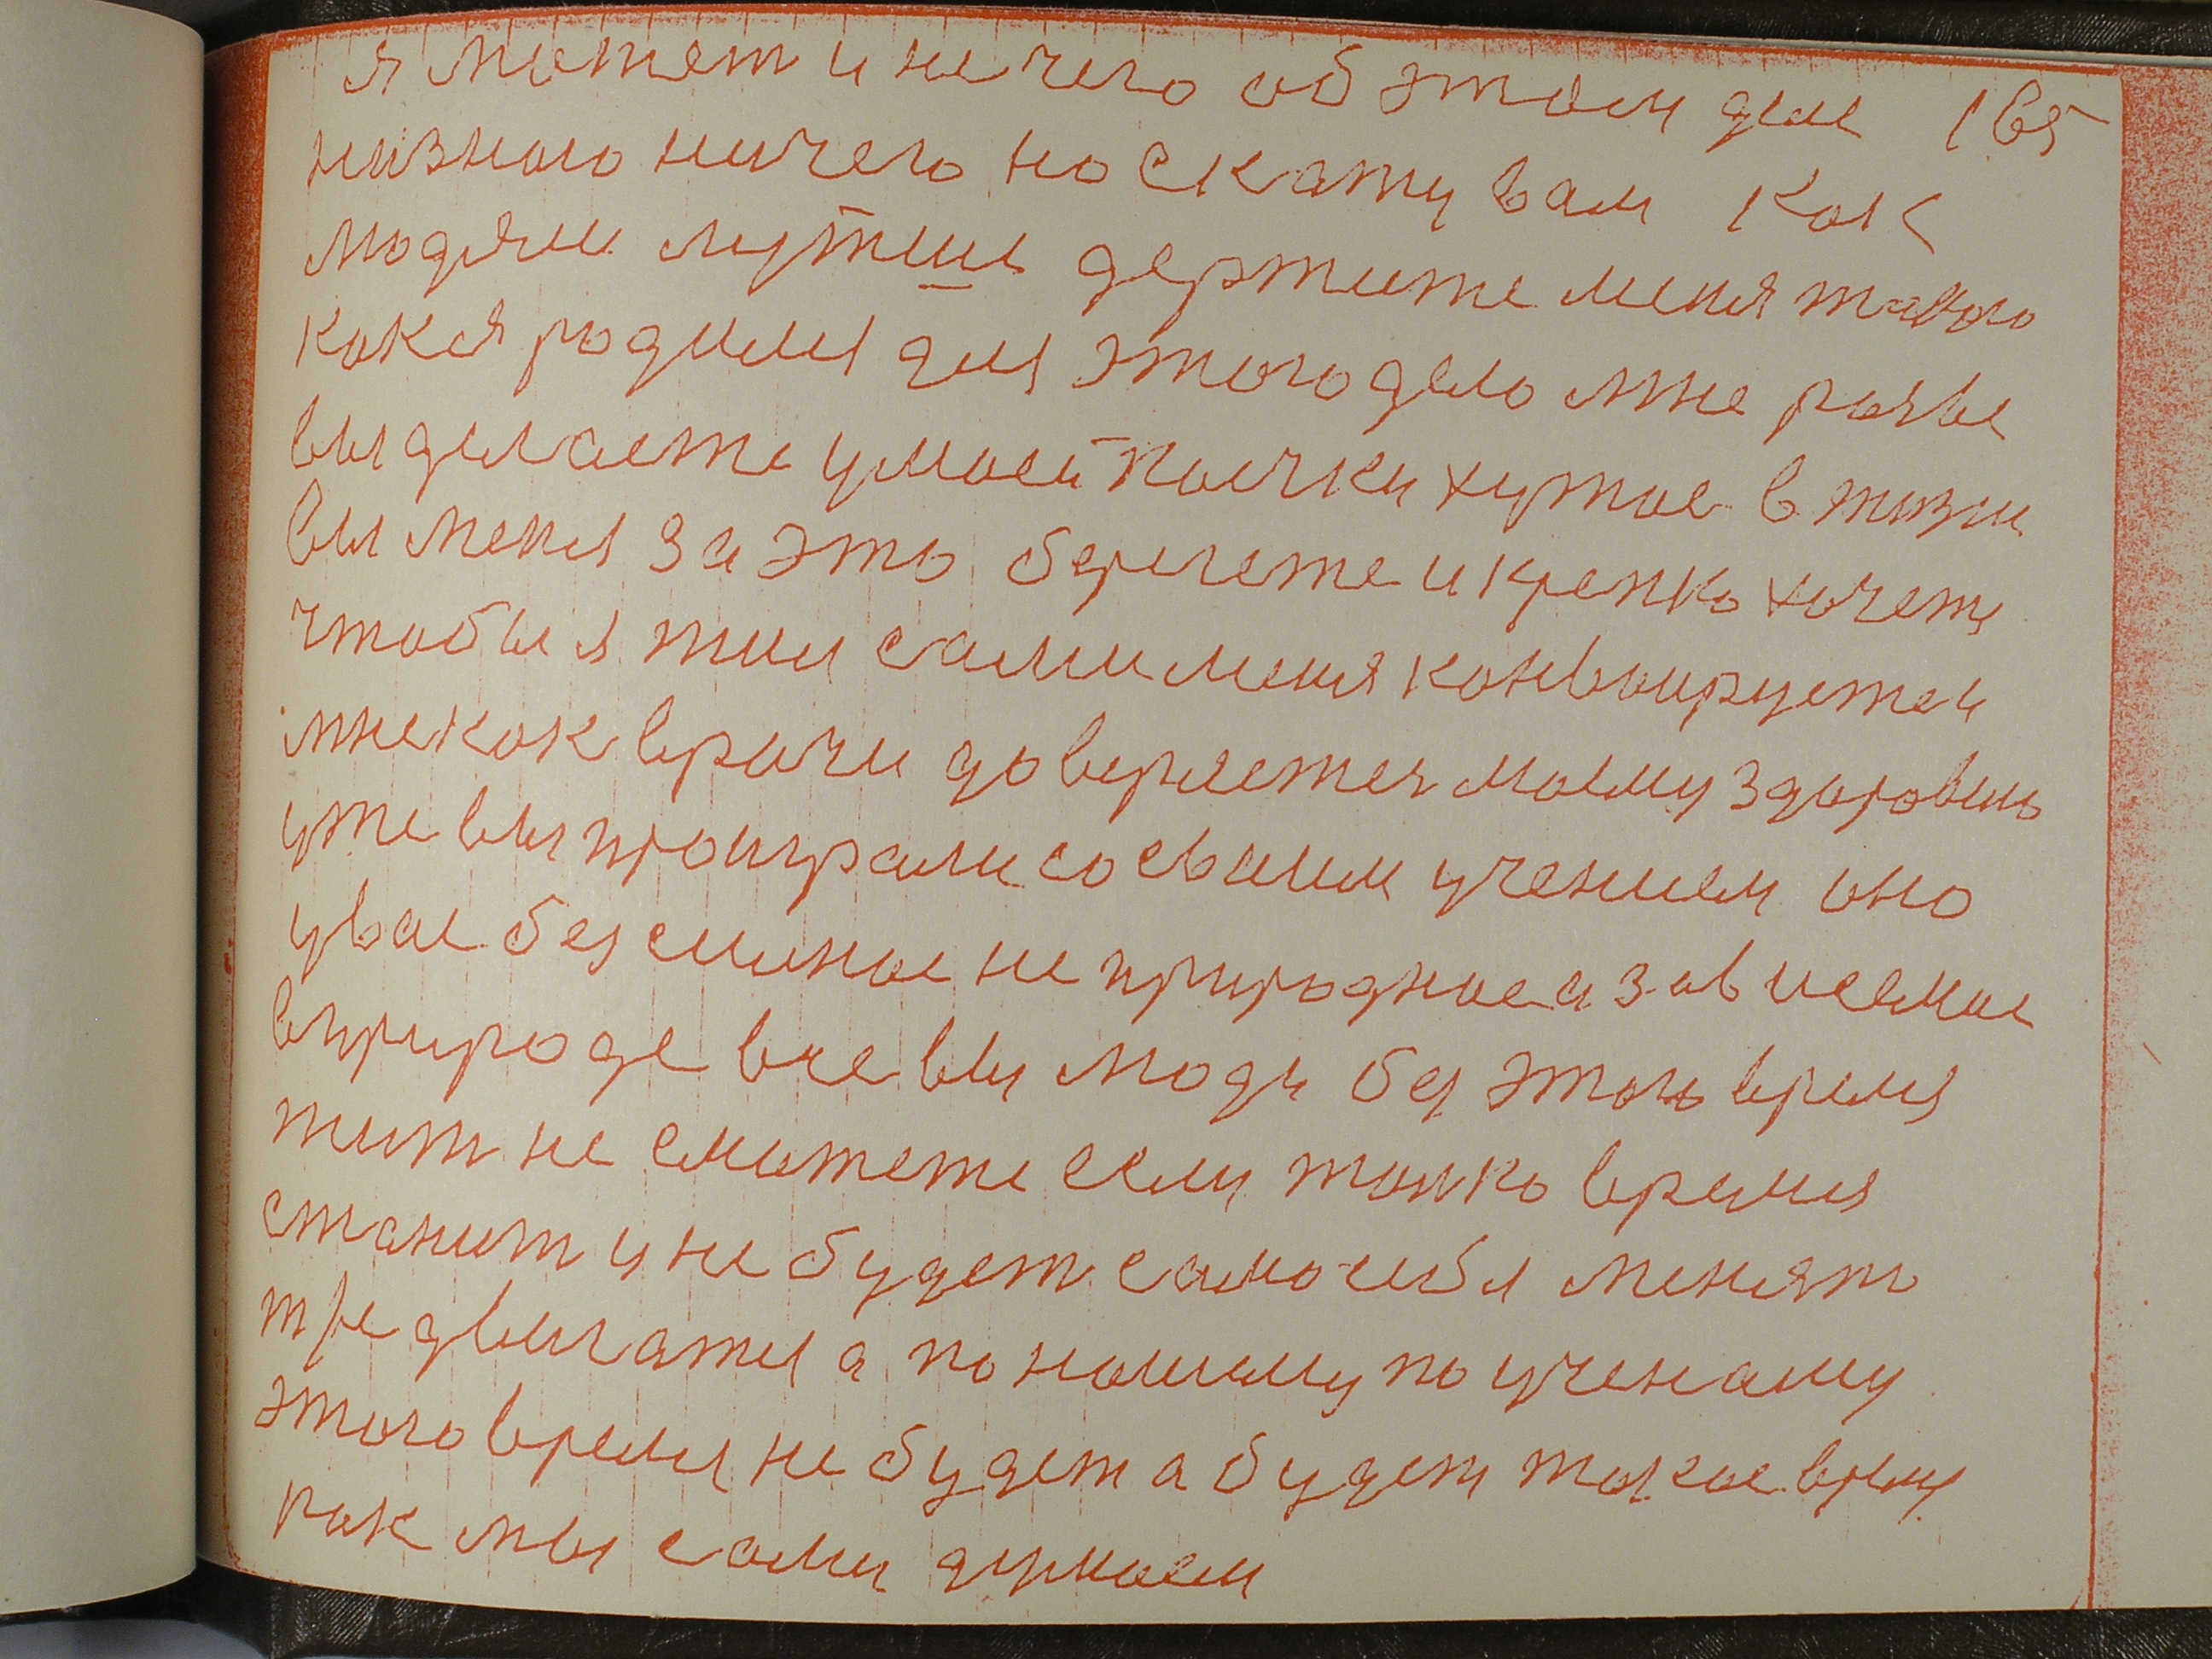 я может и не чего об этом деле 165
низного ничего но скажу вам как
людями мутиш держите меня такого
как я родился для этого дело мне
вы делаете у моей почки хужое в жизни
вы меня за это берегете и крепко хочете
чтобы я жил сами меня конвоируетеи
мне как врачи доверяетея моему здоровию
уже вы проиграли со своим учением оно
у вас безсильное не природное а зависемое
в природе все вы люди без этого время
жит не сможете если только время
станит и не будет само себя менят
двигатця а по нашему по ученаму
этого время не будет а будет такое время
как мы сами думаем